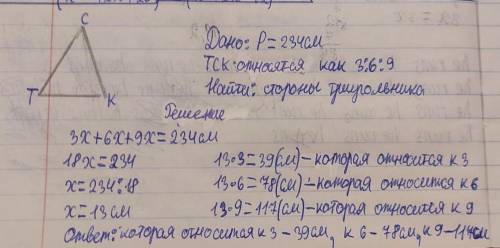 С
Т
К
Дано: Р=234см
ТСК относятся как 3:6:9
Найти: стороны треугольника
Решение
3х+6х+9х=234см
18х=234
х=234:18
х=13см
13·3=39(см)–которая относится к 3
13·6=78(см)–которая относится к 6
13·9=117(см)–которая относится к 9
Ответ: которая относится к 3–39см, к 6–78см, к 9–117см